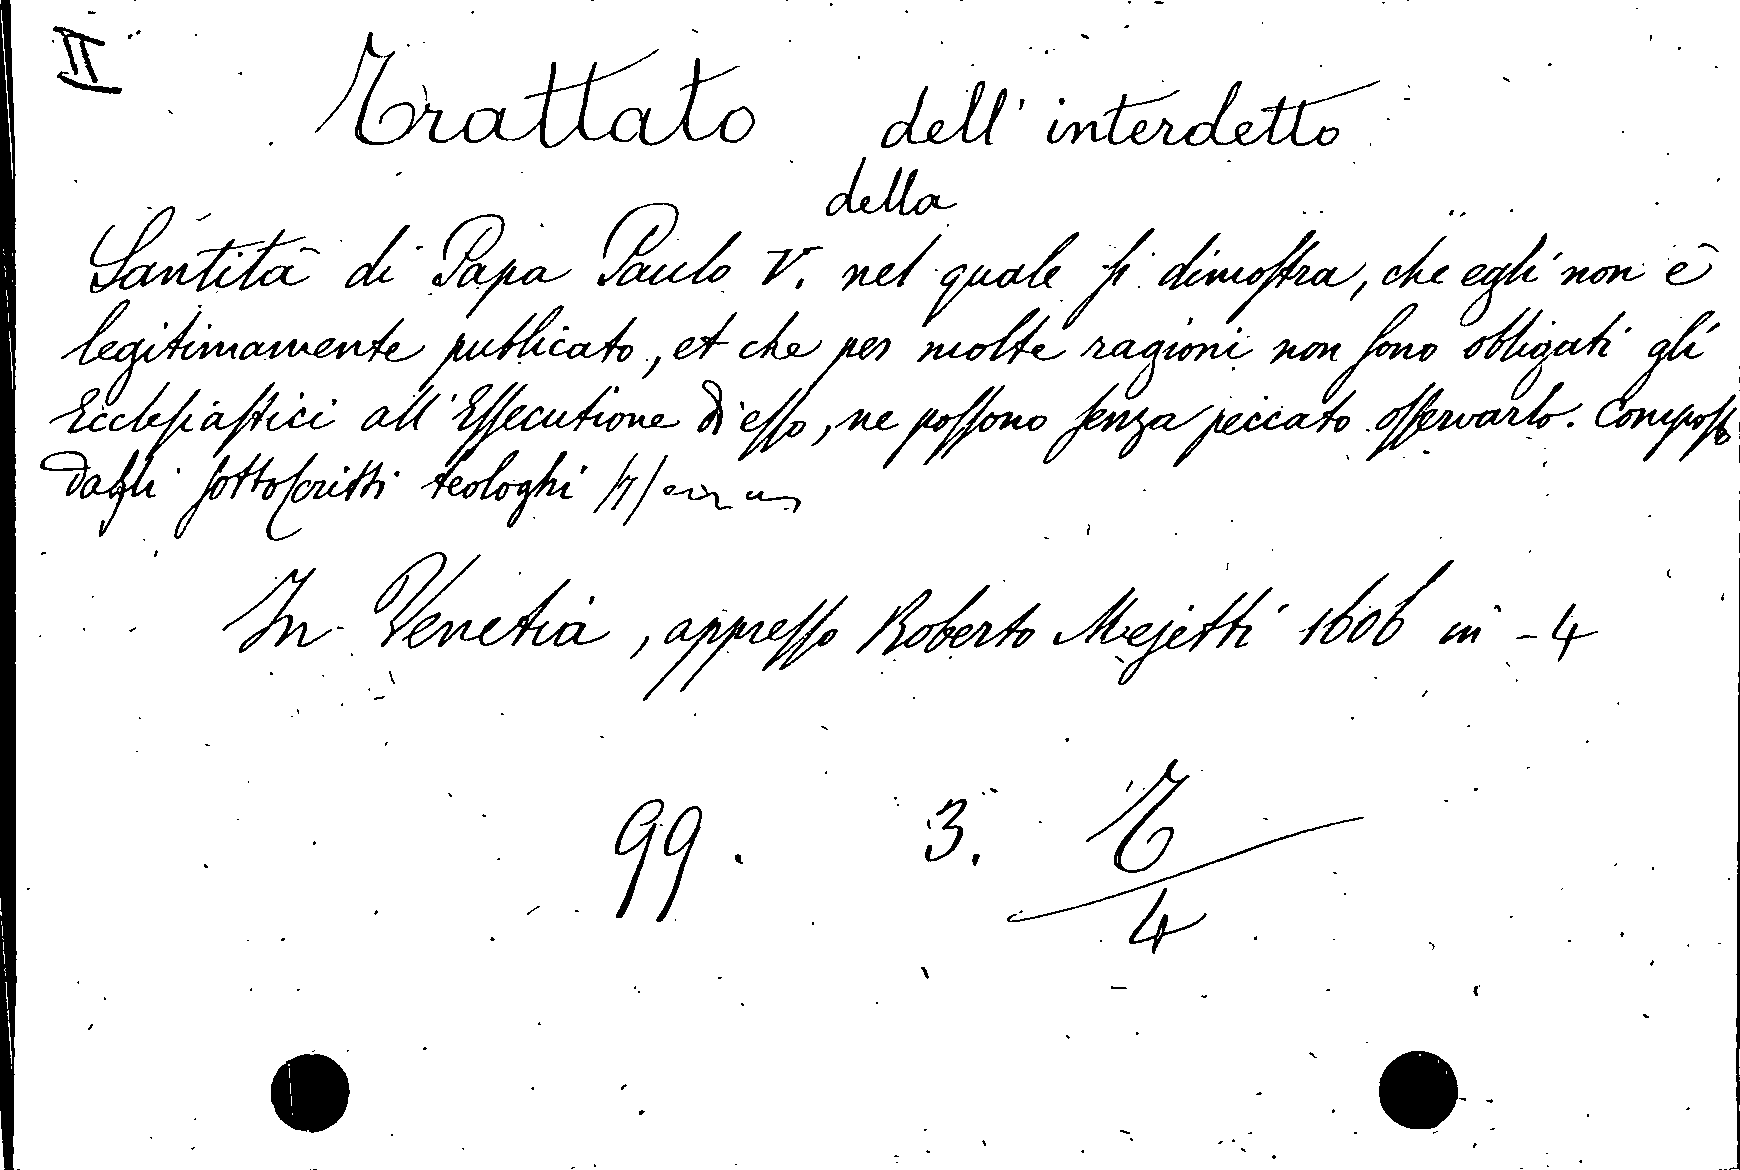 II
Trattato dell' interdetto
della
Santità di Papa Paulo V. nel quale ſi dimoſtra, che egli non è
legitimamente publicato, et che per molte ragioni non ſono obligati gli
Eccleſiaſtici all' Eſſecutione di eſſo, ne poſſono ſenza peccato oſſervarlo. Compoſto
dagli ſottoſcritti teologhi
In Venetia, appreſſo Roberto Mejetti 1606 in -4
99. 3. T
4